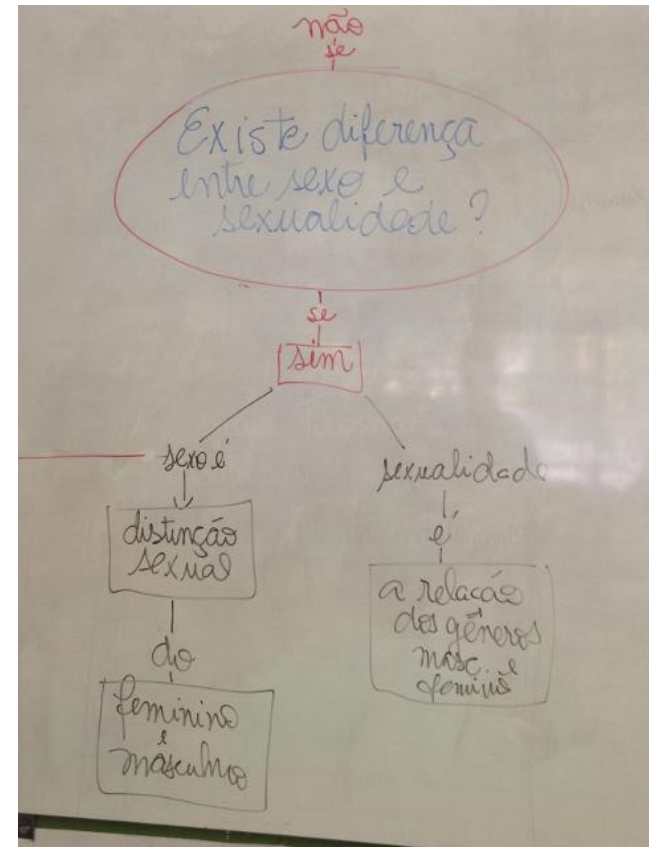 não
se
Existe diferença
entre sexo e
sexualidade?
se
sim
sexo é
distinção
sexual
do
feminino
e
másculino
sexualidade
é
a relação
dos gêneros
masc. e
feminino